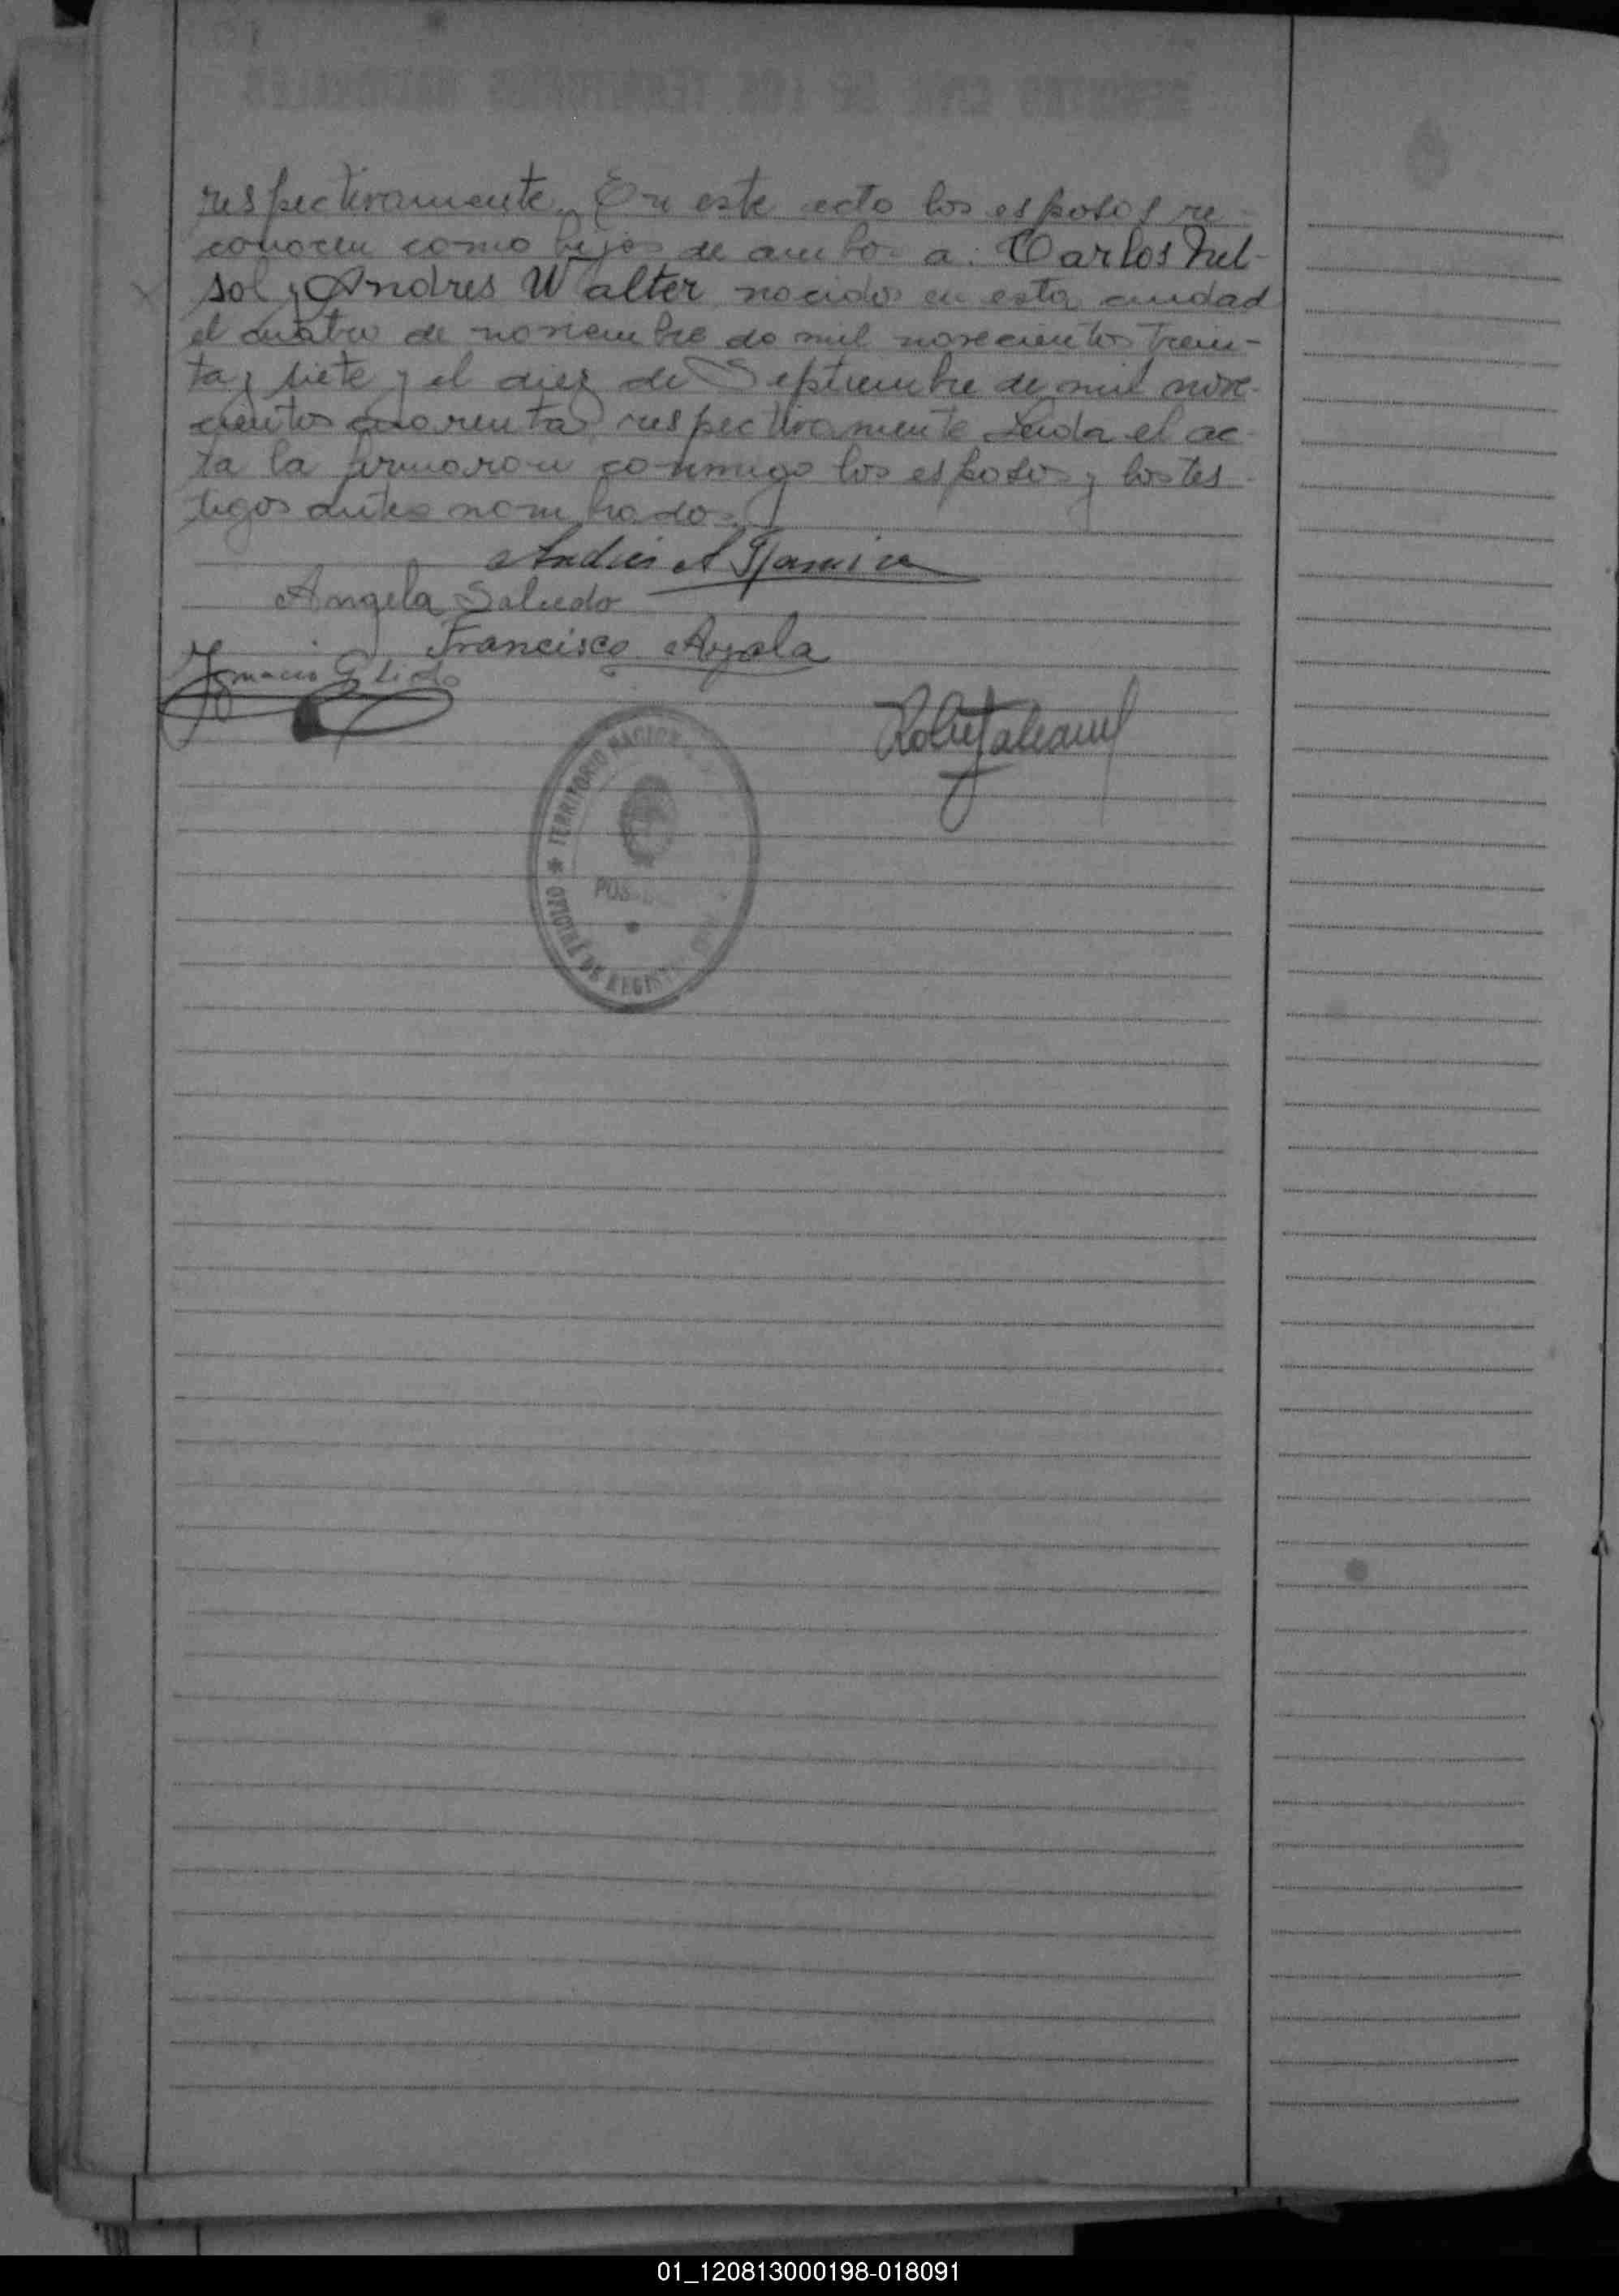 respectivamente. En este acto los esposos re-
conocen como hijos de ambos a: Carlos Nel-
sol y Andres Walter nacidos en esta ciudad
el cuatro de noviembre de mil novecientos trein-
ta y siete y el diez de Septiembre de mil nove-
cientos cuarenta respectivamente Leida el ac-
ta la firmaron conmigo los esposos y los tes-
tigos antes nombrados.
Andres A
Angela Salcedo
Francisco Ayala
Ignacio G
TERRITORIO NACION
POS
OFICINA DE REGIST
01_120813000198-018091